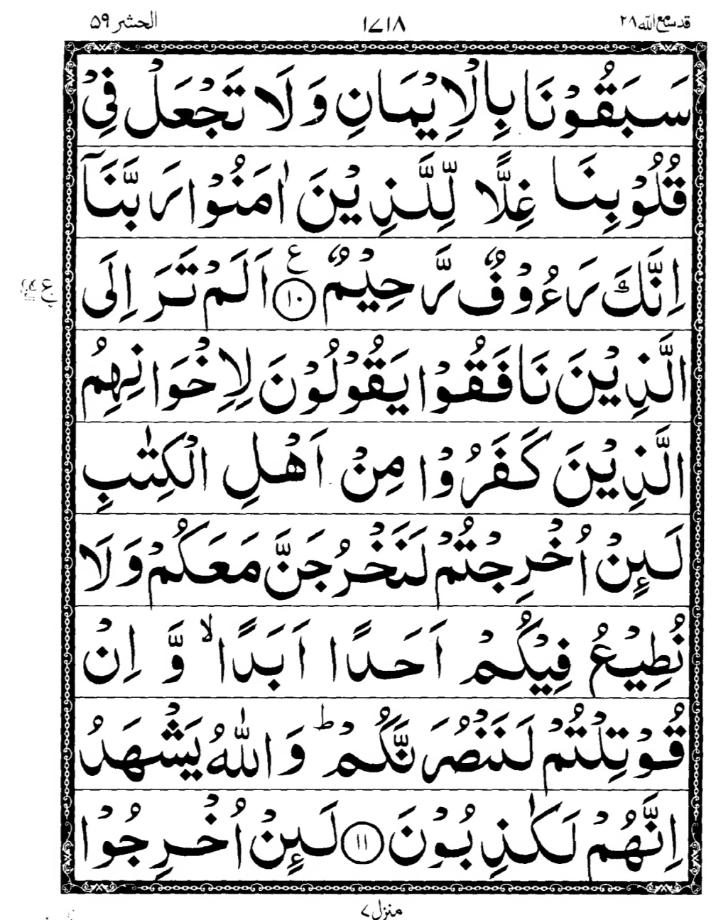 قد سمع الله ٢٨ ١٧١٨ الحشر ٥٩
سَبَقُوْنَا بِالْاِيْمَانِ وَلَا تَجْعَلْ فِيْ
قُلُوْبِنَا غِلًّا لِّلَّذِيْنَ اٰمَنُوْا رَبَّنَاۤ
اِنَّكَ رَءُوْفٌ رَّحِيْمٌ ۧ ١٠ اَلَمْ تَرَ اِلَى
الَّذِيْنَ نَافَقُوْا يَقُوْلُوْنَ لِاِخْوَانِهِمُ
الَّذِيْنَ كَفَرُوْا مِنْ اَهْلِ الْكِتٰبِ
لَىِٕنْ اُخْرِجْتُمْ لَنَخْرُجَنَّ مَعَكُمْ وَلَا
نُطِيْعُ فِيْكُمْ اَحَدًا اَبَدًا ۙ وَّ اِنْ
قُوْتِلْتُمْ لَنَنْصُرَنَّكُمْ ؕ وَاللّٰهُ يَشْهَدُ
اِنَّهُمْ لَكٰذِبُوْنَ ١١ لَىِٕنْ اُخْرِجُوْا
منزل ٧